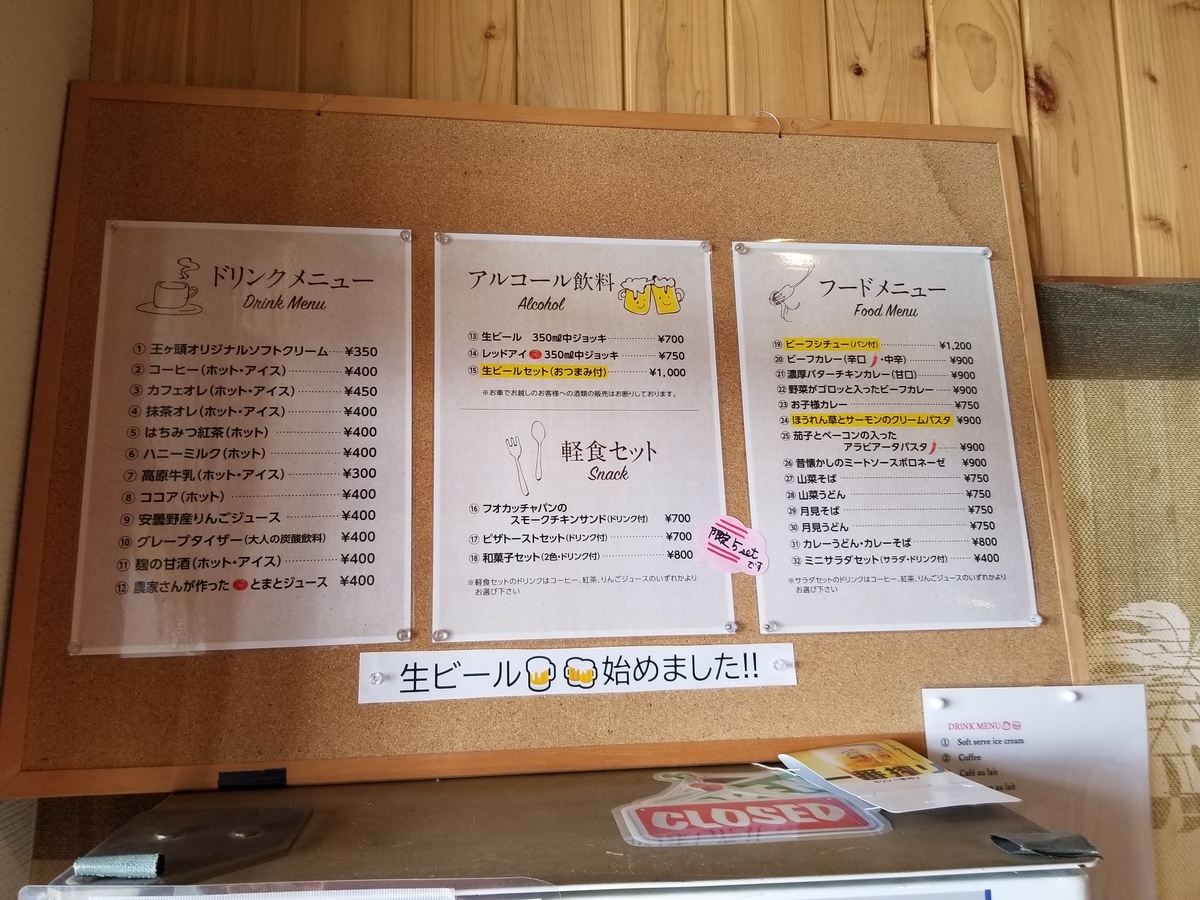 ドリンクメニュー
Drink Menu
① 王ヶ頭オリジナルソフトクリーム ¥350
② コーヒー(ホット・アイス) ¥400
③ カフェオレ(ホット・アイス) ¥450
④ 抹茶オレ(ホット・アイス) ¥400
⑤ はちみつ紅茶(ホット) ¥400
⑥ ハニーミルク(ホット) ¥400
⑦ 高原牛乳(ホット・アイス) ¥300
⑧ ココア(ホット) ¥400
⑨ 安曇野産りんごジュース ¥400
⑩ グレープタイザー(大人の炭酸飲料) ¥400
⑪ 麹の甘酒(ホット・アイス) ¥400
⑫ 農家さんが作ったとまとジュース ¥400
アルコール飲料
Alcohol
⑬ 生ビール 350㎖中ジョッキ ¥700
⑭ レッドアイ 350㎖中ジョッキ ¥750
⑮ 生ビールセット(おつまみ付) ¥1,000
※お車でお越しのお客様への酒類の販売はお断りしております。
軽食セット
Snack
⑯ フオカッチャパンの
スモークチキンサンド(ドリンク付) ¥700
⑰ ピザトーストセット(ドリンク付) ¥700
⑱ 和菓子セット(2色・ドリンク付) ¥800
※軽食セットのドリンクはコーヒー、紅茶、りんごジュースのいずれかより
お選び下さい
限定5set
です
フードメニュー
Food Menu
⑲ ビーフシチュー(パン付) ¥1,200
⑳ ビーフカレー(辛口・中辛) ¥900
㉑ 濃厚バターチキンカレー(甘口) ¥900
㉒ 野菜がゴロッと入ったビーフカレー ¥900
㉓ お子様カレー ¥750
㉔ ほうれん草とサーモンのクリームパスタ ¥900
㉕ 茄子とベーコンの入った
アラビアータパスタ ¥900
㉖ 昔懐かしのミートソースボロネーゼ ¥900
㉗ 山菜そば ¥750
㉘ 山菜うどん ¥750
㉙ 月見そば ¥750
㉚ 月見うどん ¥750
㉛ カレーうどん・カレーそば ¥800
㉜ ミニサラダセット(サラダ・ドリンク付) ¥400
※サラダセットのドリンクはコーヒー、紅茶、りんごジュースのいずれかより
お選び下さい
生ビール始めました!!
DRINK MENU
① Soft serve ice cream
② Coffee
Café au lait
au lait
CLOSED